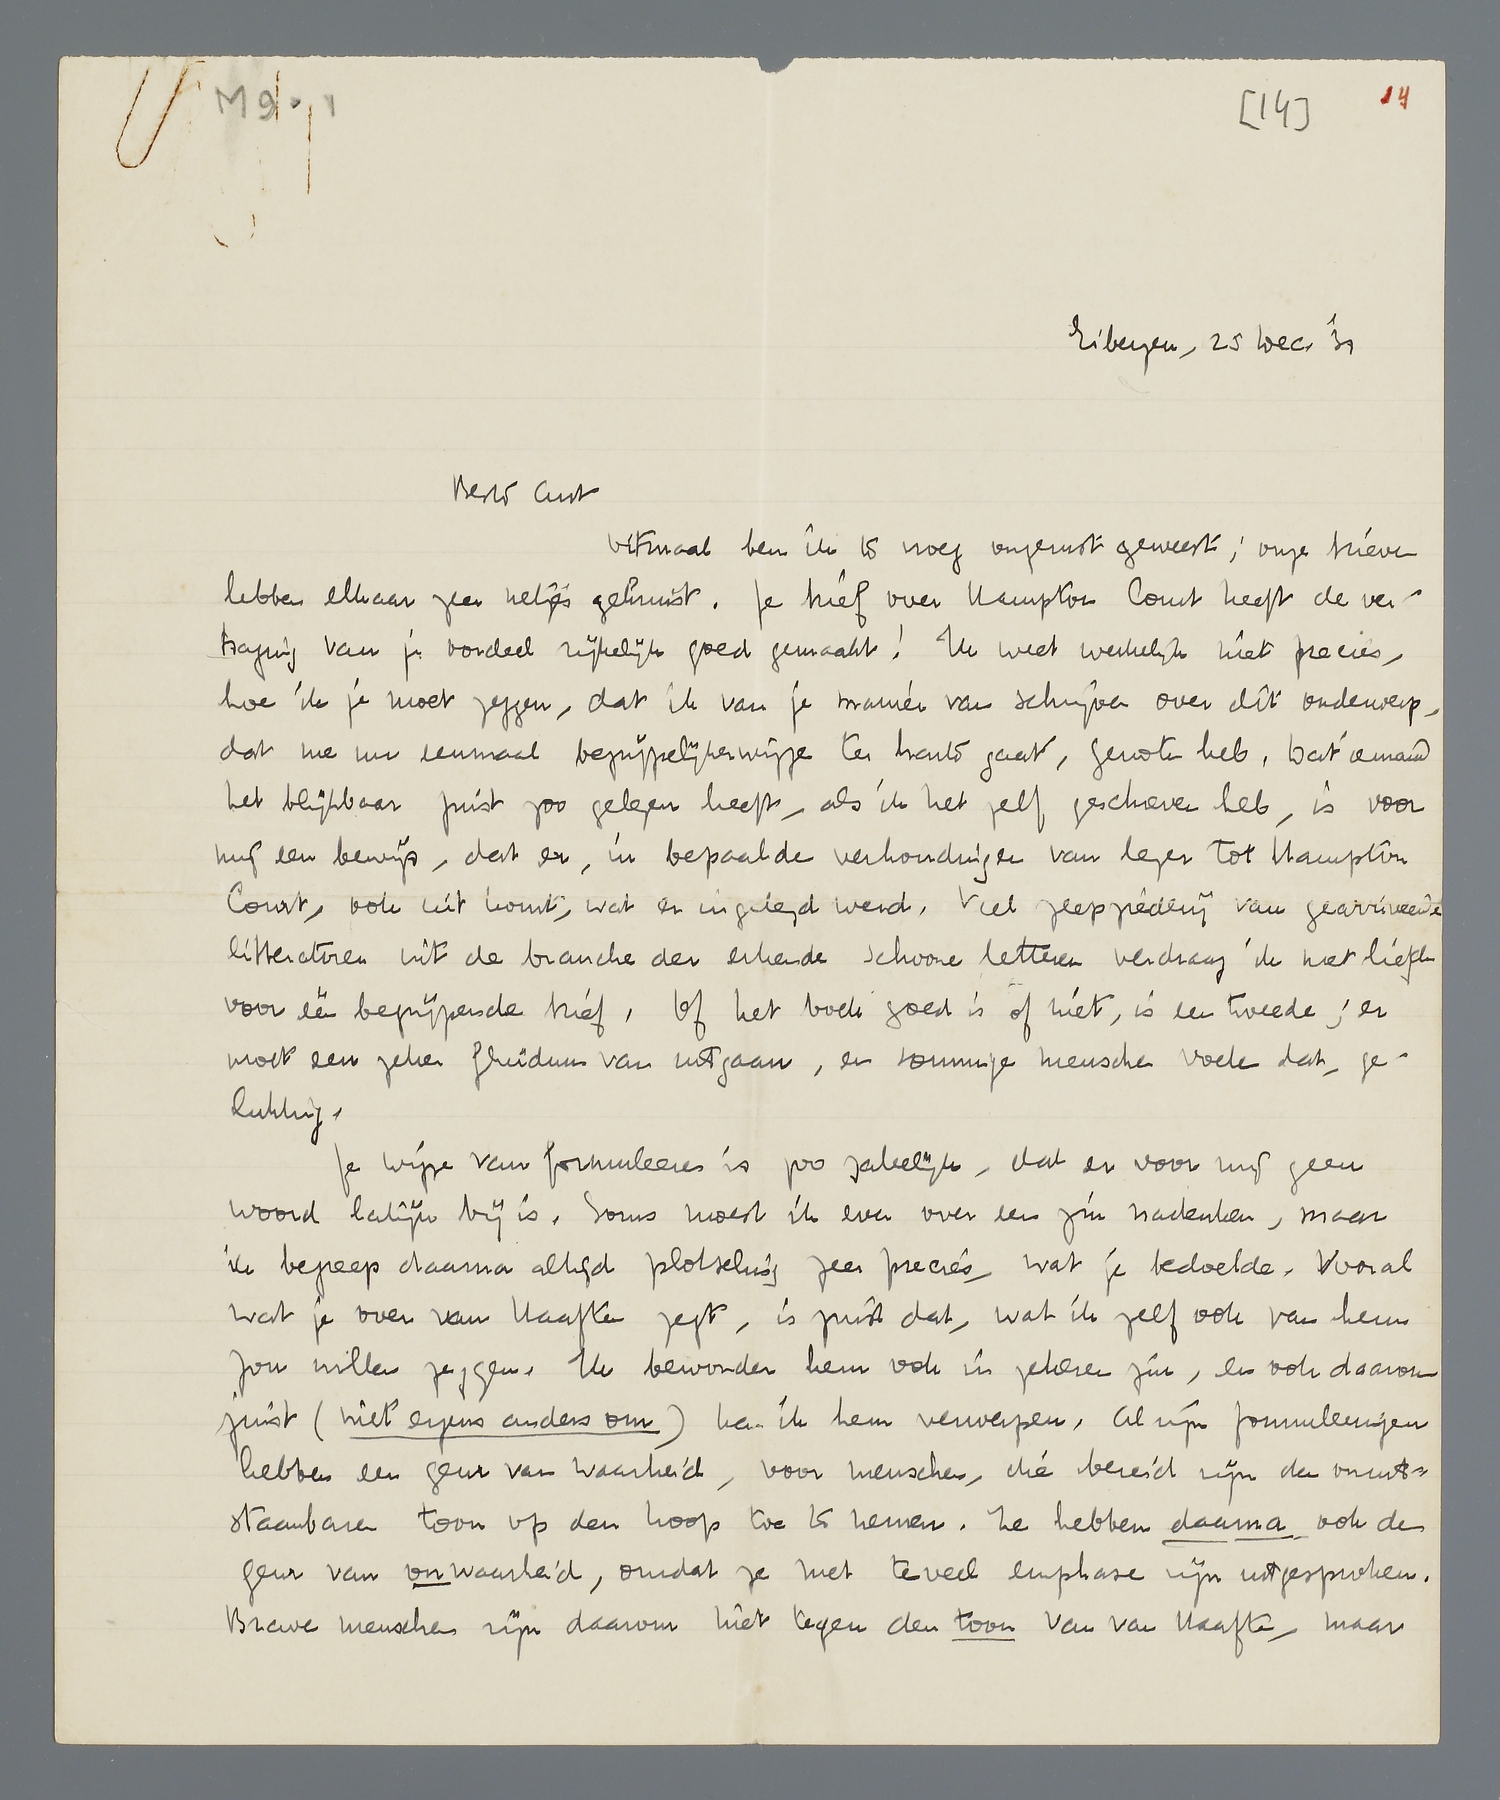 M 9 - 1
[14]
14
Eibergen, 25 Dec. '31
Beste Cust
Ditmaal ben ik te vroeg ongerust geweest; onze brieven
hebben elkaar zeer netjes gekruist. Je brief over Hampton Court heeft de ver-
traging van je oordeel rijkelijk goed gemaakt! Ik weet werkelijk niet precies,
hoe ik je moet zeggen, dat ik van je manier van schrijven over dit onderwerp,
dat me nu eenmaal begrijpelijkerwijze ter harte gaat, genoten heb. Dat iemand
het blijkbaar juist zoo gelezen heeft, als ik het zelf geschreven heb, is voor
mij een bewijs, dat er, in bepaalde verhoudingen van lezer tot Hampton
Court, ook uit komt, wat er ingelegd werd. Veel zeepziederij van gearriveerde
litteratoren uit de branche der erkende schoone letteren verdraag ik met liefde
voor één begrijpende brief. Of het boek goed is of niet, is een tweede; er
moet een zeker fluïdum van uitgaan, en sommige menschen voelen dat, ge-
lukkig.
Je wijze van formuleeren is zoo zakelijk, dat er voor mij geen
woord latijn bij is. Soms moest ik even over een zin nadenken, maar
ik begreep daarna altijd plotseling zeer precies, wat je bedoelde. Vooral
wat je over van Haaften zegt, is juist dat, wat ik zelf ook van hem
zou willen zeggen. Ik bewonder hem ook in zekeren zin, en ook daarom
juist (niet ergens anders om) kan ik hem verwerpen. Al zijn formuleeringen
hebben een geur van waarheid, voor menschen, die bereid zijn den onuit-
staanbaren toon op den koop toe te nemen. Ze hebben daarna ook den
geur van onwaarheid, omdat ze met teveel emphase zijn uitgesproken.
Brave menschen zijn daarom niet tegen den toon van van Haaften, maar